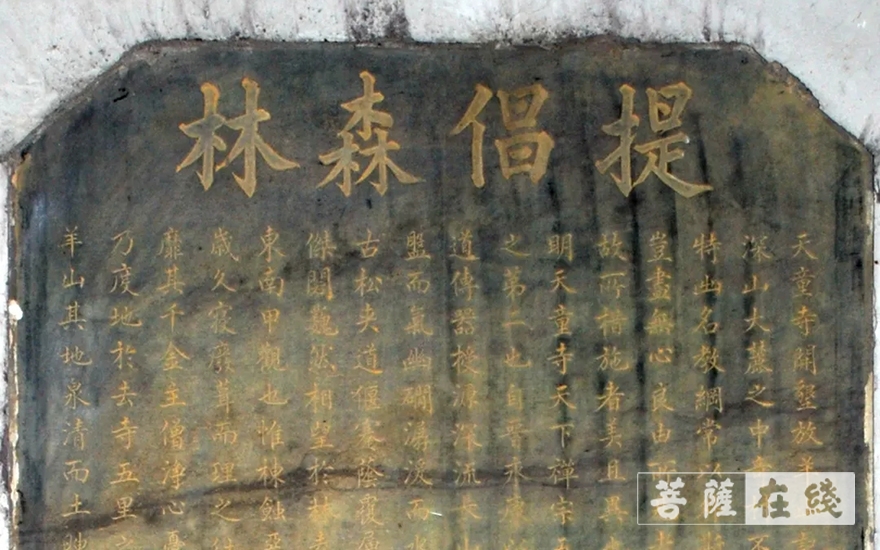 提倡森林
天童寺開墾放羊
深山大麓之中
特幽名教綱常以
豈盡無心良由
故所措施者美且異
明天童寺天下禅宗五
之第二也自晋永
道傳器授源深流
盤而氣幽磵潺湲而
古松夾道偃蹇蔭覆
傑閣巍然相望於林
東南甲觀也惟棟蝕
歲久寝廢葺而理之
靡其千金主僧淨心
乃度地於去寺五里
羊山其地泉清而土
菩薩在綫